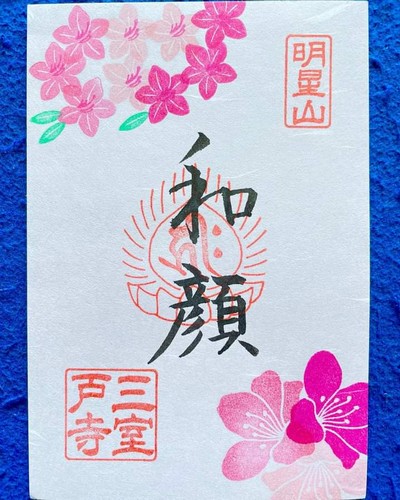 明星山
和顔
三室
戸寺